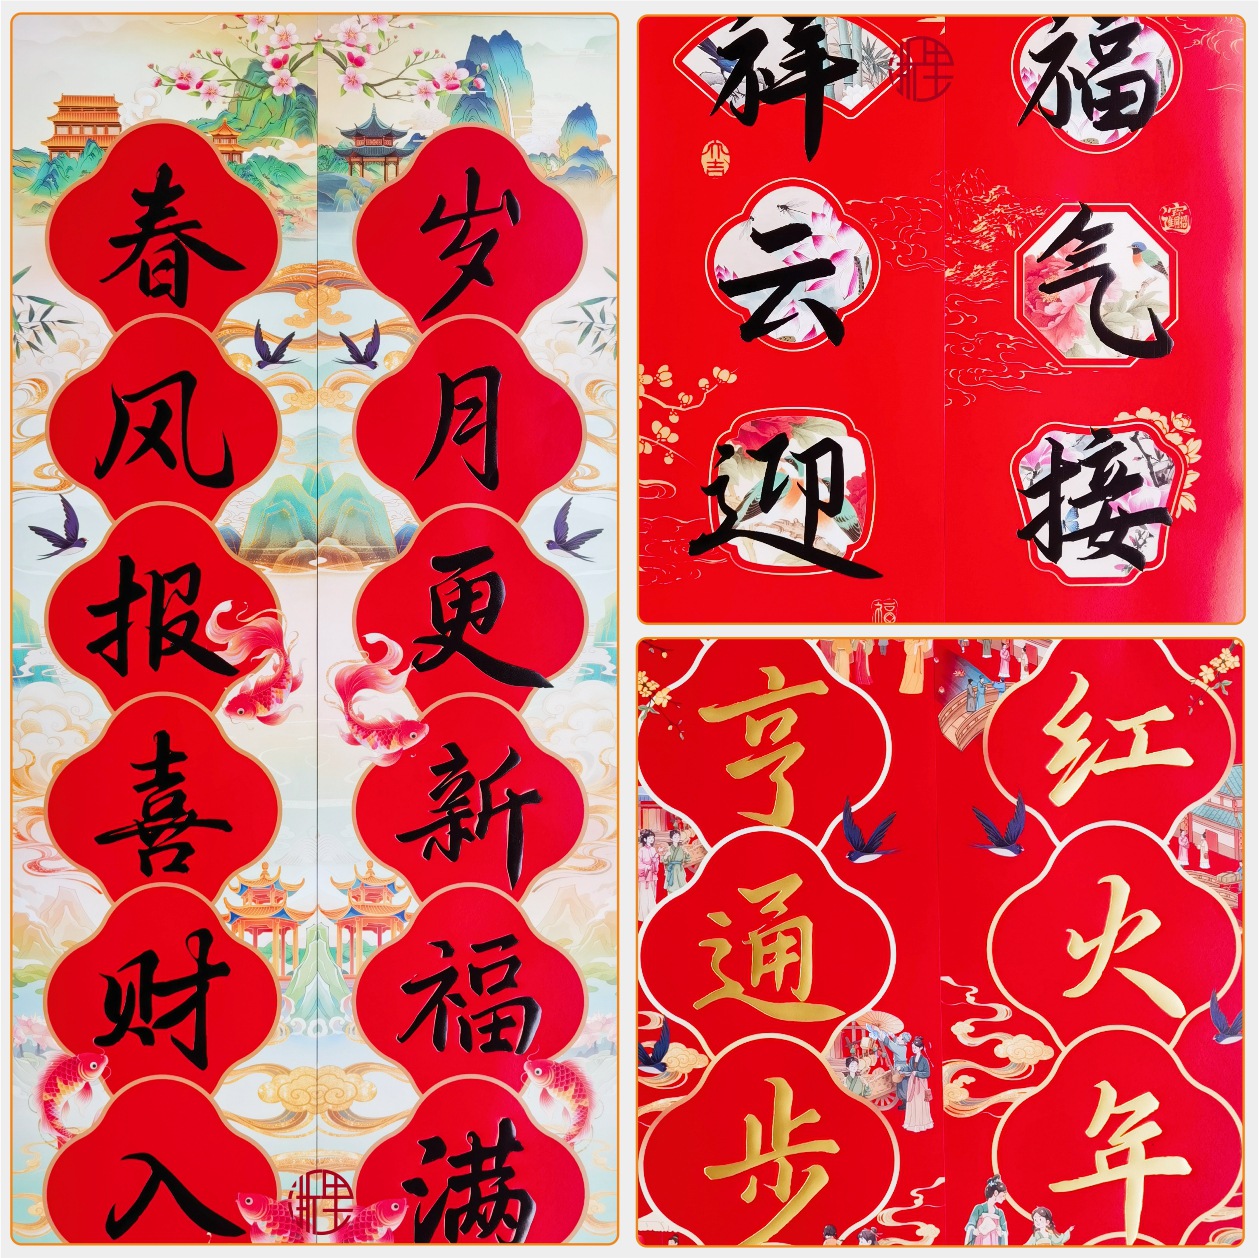 春风报喜财入
岁月更新福满
祥云迎
福气接
大吉
福
亨通步
红火年